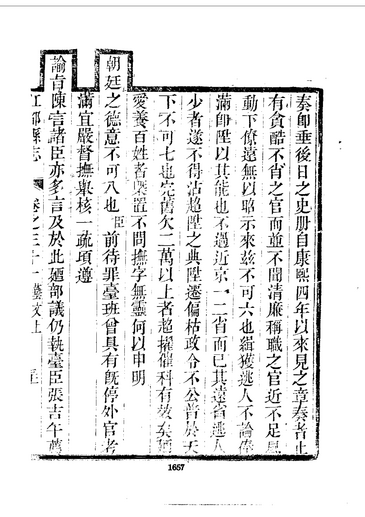 奏卽垂後日之史册自康熙四年以來見之章奏者止
有貪酷不肖之官而並不聞淸廉稱職之官近不足風
動下僚遠無以昭示來玆不可六也緝獲逃人不論俸
滿卽陞以其能也不過近京一二省而已其遠省逃人
少者遂不得沾超陞之典陞遷偏枯政令不公普於天
下不可七也完舊欠二萬以上者超擢催科有效矣
愛養百姓者槩置不問撫字無靈何以申明
朝廷之德意不可八也臣前待罪臺班曾具有旣停外官考
滿宜嚴督撫舉核一疏頃遵
諭旨陳言諸臣亦多言及於此廼部議仍執臺臣張吉午舊
江都縣志 卷之三十一 藝文上
1657